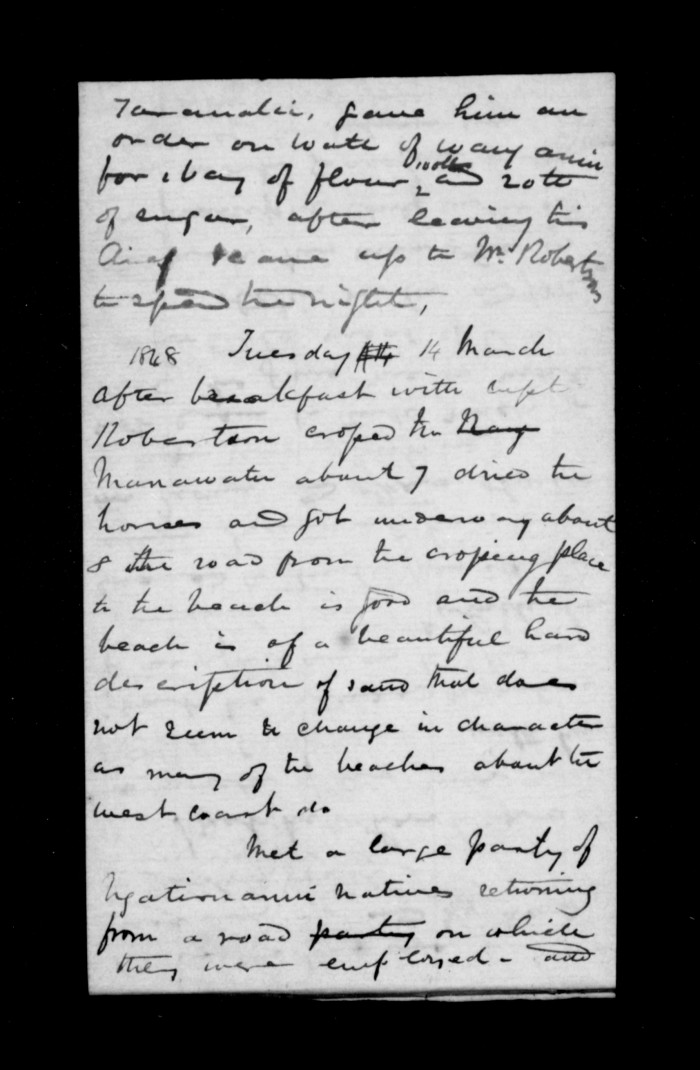 Taranaki, gave him an
order on Watt of Wanganui
for 1 bag of flour, 100lb and 20lb
of sugar, after leaving this
came up to Mr. Robertsons
to spend the night,
1848 Tuesday 14 March
After breakfast with Capt
Robertson croped the
Manawatu about 7 dried the
horses and got underway about
8 the road from the croping place
to the beach is good and the
beach is of a beautiful hard
description of sand that does
not seem to change in character
as many of the beaches about the
west coast do
Met a large party of
natives returning
from a road party on which
they were employed - and